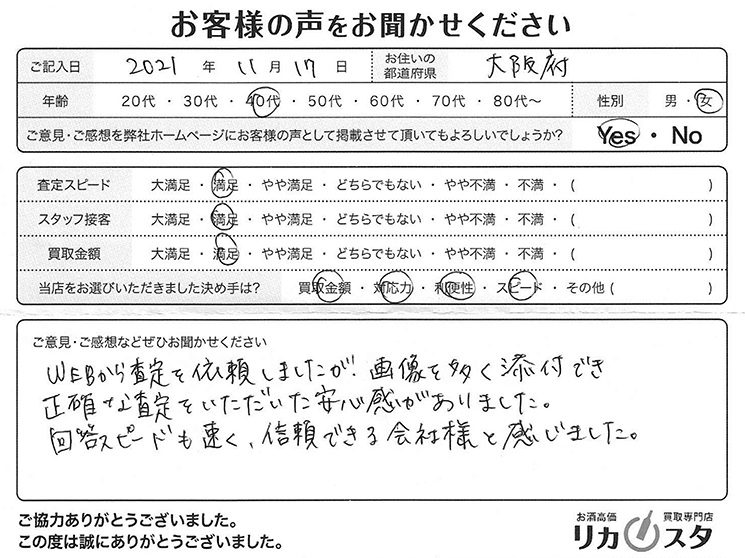 お客様の声をお聞かせください
ご記入日 2021 年 11 月 17 日 お住いの都道府県 大阪府
年齢 20代 ・ 30代 ・ 40代 ・ 50代 ・ 60代 ・ 70代 ・ 80代〜 性別 男 ・ 女
ご意見・ご感想を弊社ホームページにお客様の声として掲載させて頂いてもよろしいでしょうか? Yes ・ No
査定スピード 大満足 ・ 満足 ・ やや満足 ・ どちらでもない ・ やや不満 ・ 不満 ・ ( )
スタッフ接客 大満足 ・ 満足 ・ やや満足 ・ どちらでもない ・ やや不満 ・ 不満 ・ ( )
買取金額 大満足 ・ 満足 ・ やや満足 ・ どちらでもない ・ やや不満 ・ 不満 ・ ( )
当店をお選びいただきました決め手は? 買取金額 ・ 対応力 ・ 利便性 ・ スピード ・ その他 ( )
ご意見・ご感想などぜひお聞かせください
WEBから査定を依頼しましたが、画像を多く添付でき
正確な査定をいただいた安心感がありました。
回答スピードも速く、信頼できる会社様と感じました。
ご協力ありがとうございました。
この度は誠にありがとうございました。
お酒高価 買取専門店
リカスタ